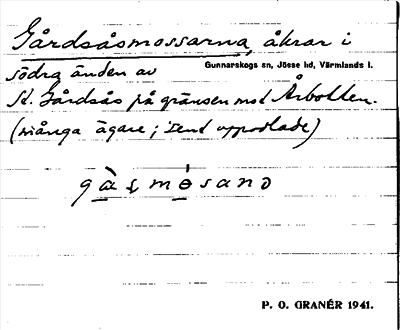 Gårdsåsmossarna, åkrar i
södra änden av Gunnarskogs sn, Jösse hd, Värmlands l.
St. Gårdsås på gränsen mot Årbotten.
(många ägare; sent uppodlade)
P. O. GRANÉR 1941.